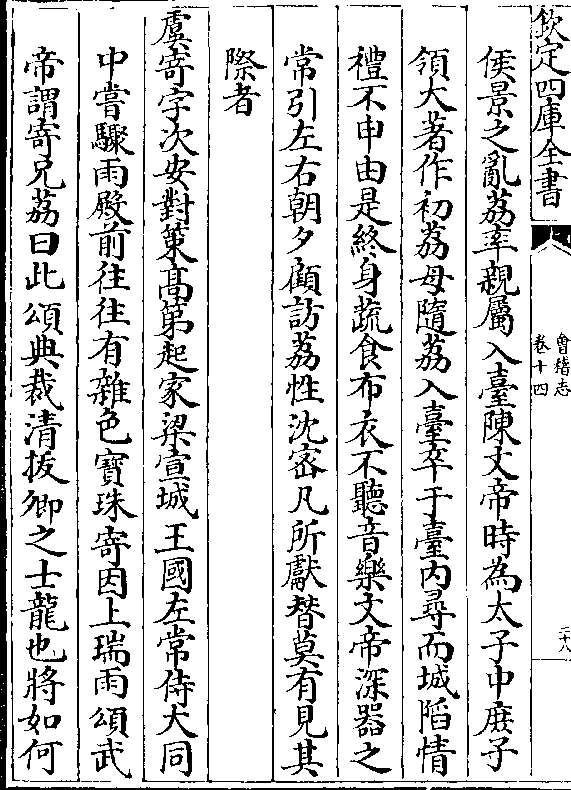 欽定四庫全書
會稽志
卷十四
二十八
侯景之亂荔率親屬入臺陳文帝時為太子中庶子
領大著作初荔母隨荔入臺卒于臺内尋而城陷情
禮不申由是終身蔬食布衣不聽音樂文帝深器之
常引左右朝夕顧訪荔性沈宻凡所獻替莫有見其
際者
虞寄字次安對策髙第起家梁宣城王國左常侍大同
中嘗驟雨殿前往往有雜色寶珠寄因上瑞雨頌武
帝謂寄兄荔曰此頌典裁清拔卿之士龍也將如何